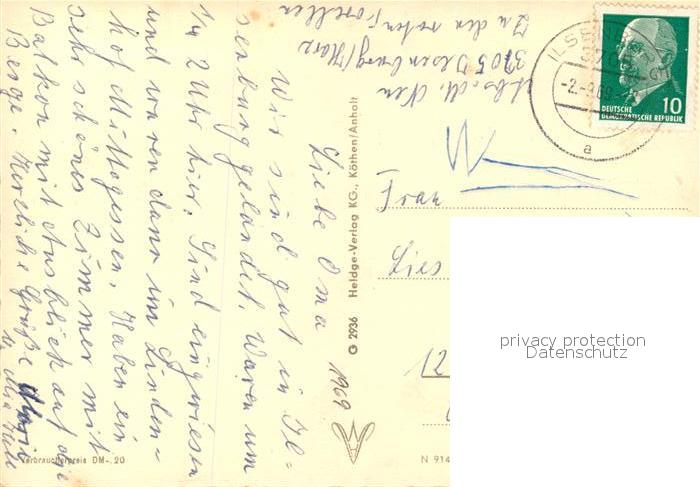 Liebe Oma
Wir sind gut in Il-
senburg gelandet. Waren um
1/4 2 Uhr hier. Sind eingwiesen
und waren dann im Linden-
hof Mittagessen. Haben ein
sehr schönes Zimmer mit
Balkon mit Ausblick auf die
Berge. Herzliche Grüße
1969
Verbraucherpreis DM -.20
G 2936 Heldge-Verlag KG., Köthen/Anholt
N 914
3705 Ilsenburg/Harz
Zu den roten Forellen
Frau
Lies
12
ILSEN
-2.-9.69
a
10
DEUTSCHE
DEMOKRATISCHE REPUBLIK
privacy protection
Datenschutz